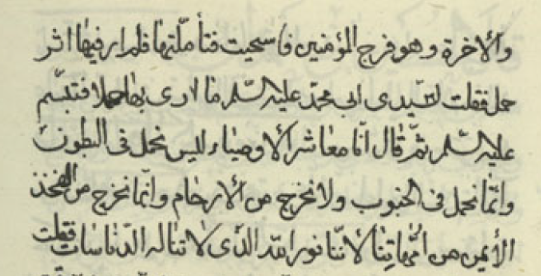 والاخرة وهو فرج المؤمنين فاستحيت فتأملتها فلم ار فيها اثر
حمل فقلت لسيدى ابى محمد عليه السلم ما ارى بها حملا فتبسم
عليه السلم ثم قال انا معاشر الاوصياء ليس نحمل فى البطون
وانما نحمل فى الجنوب ولا نخرج من الارحام وانما نخرج من الفخذ
الأيمن من امهاتنا لاننا نور الله الذى لا تناله الدناسات فقلت